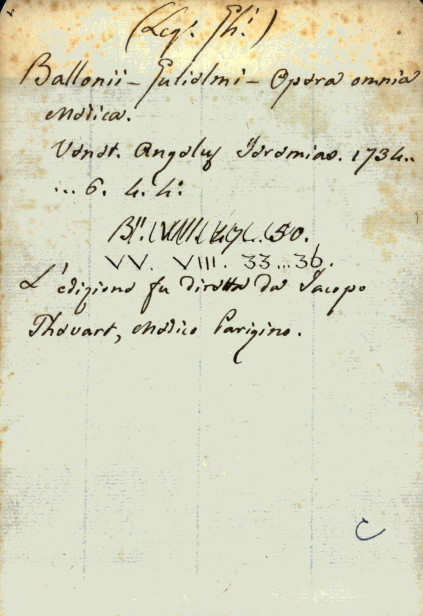 (Leg: Eh:)
Ballonii - Gulielmi - Opera omnia
medica.
Venet. Angelus Jeremias. 1734..
... 6. 4. 4:
VV. VIII. 33...36.
L'edizione fu diretta da Jacopo
Thevart, medico Parigino.
C